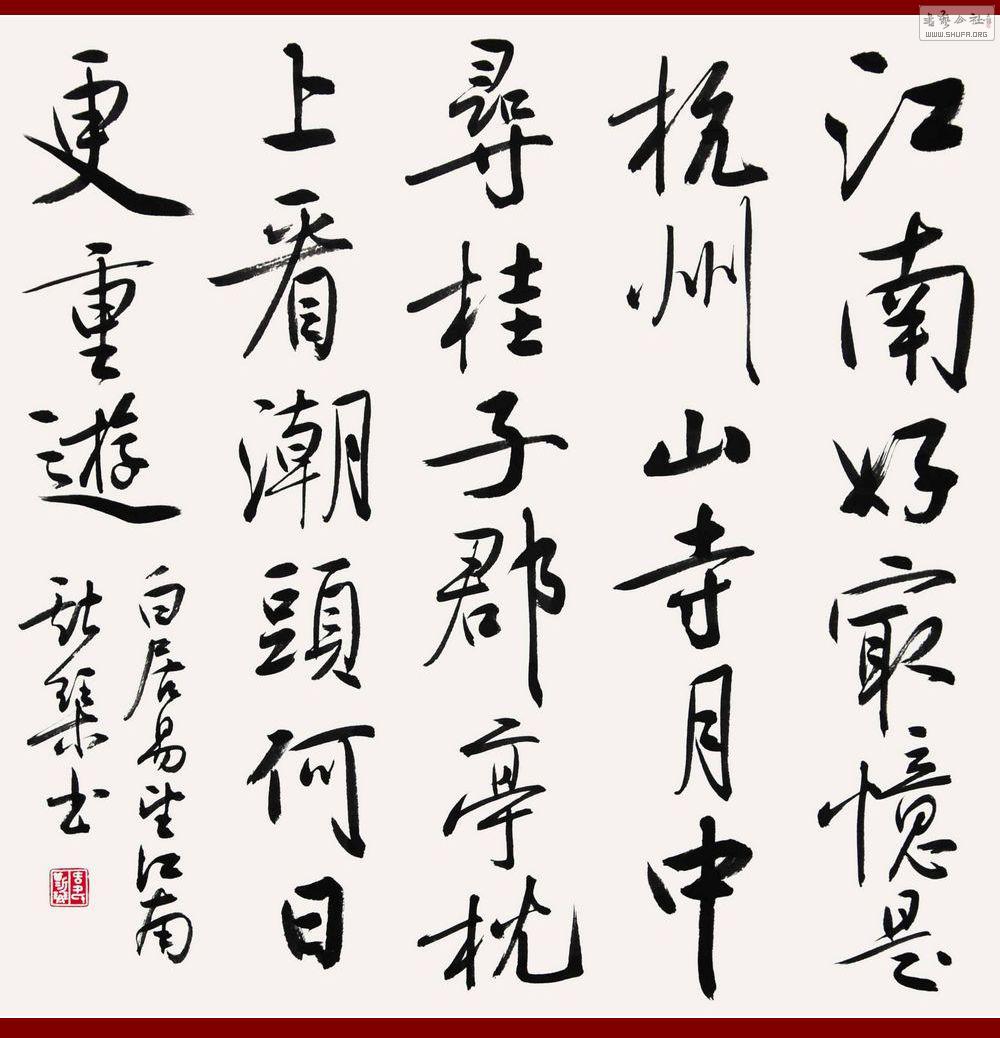 江南好㝡憶是
杭州山寺月中
尋桂子郡亭枕
上看潮頭何日
更重遊
白居易望江南
書
WWW.SHUFA.ORG